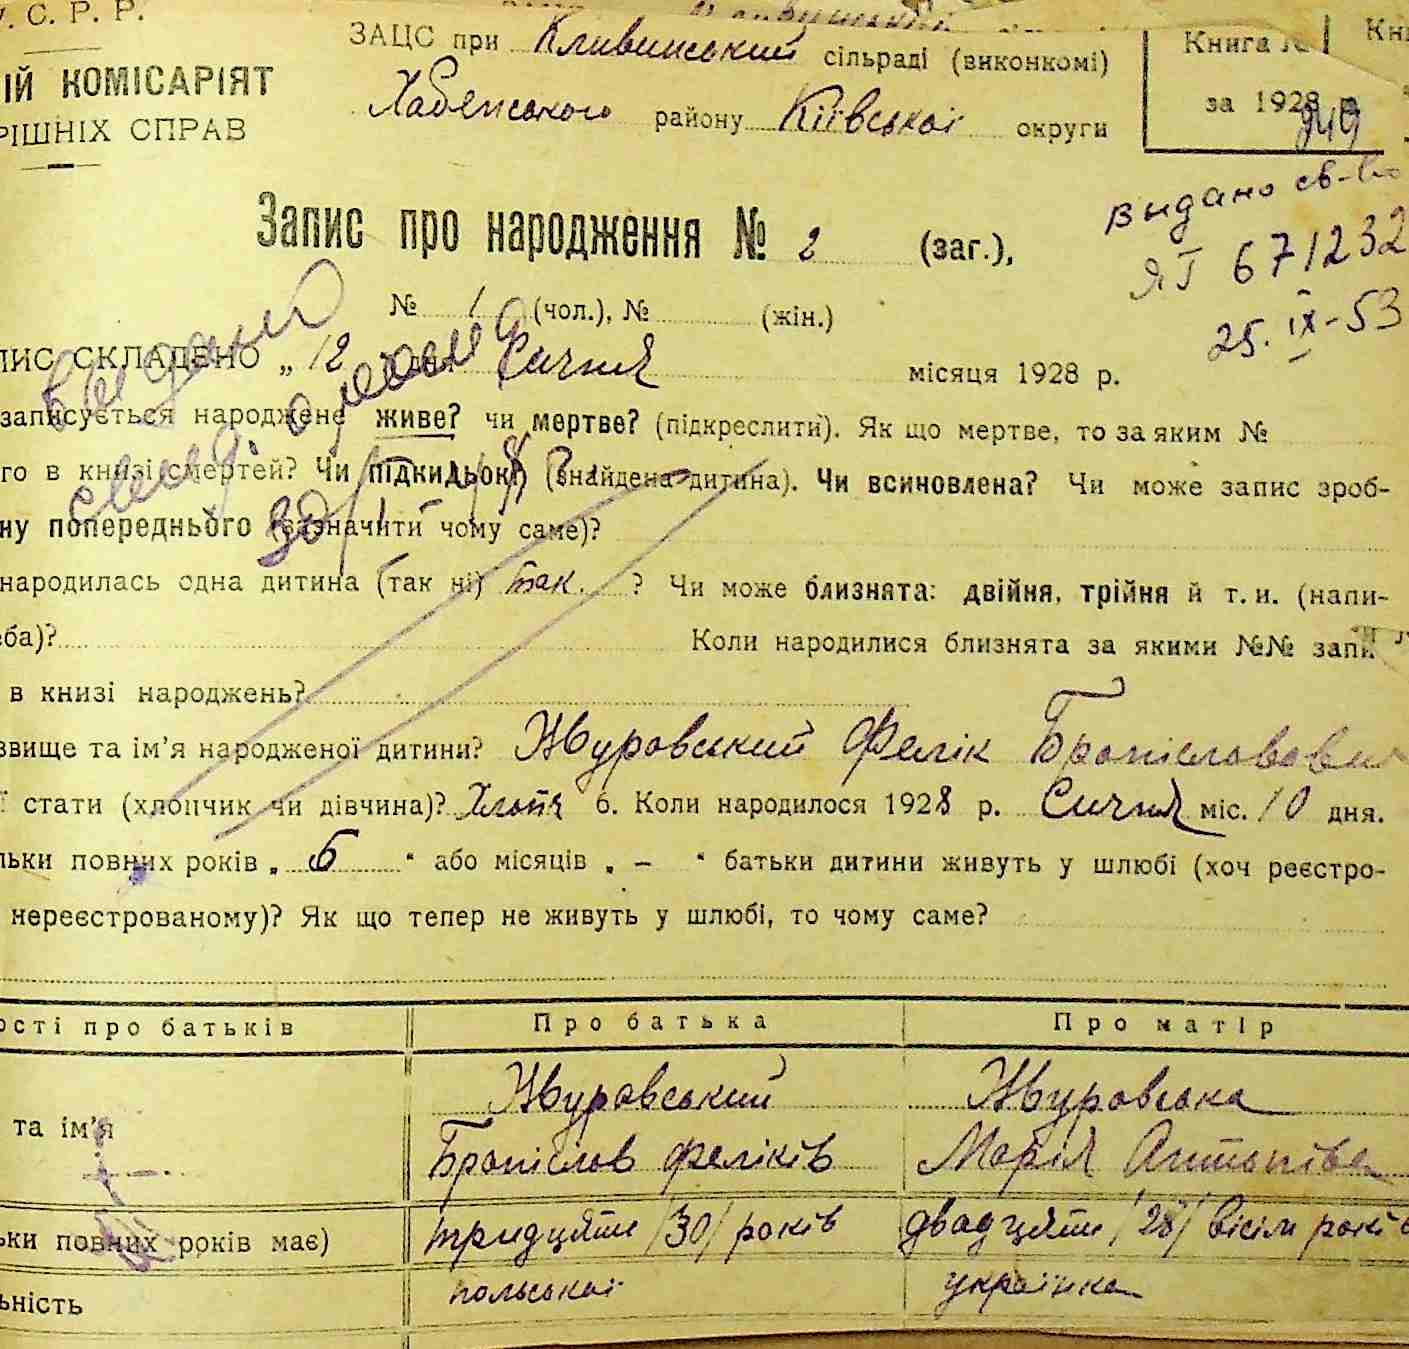 У. С. Р. Р.
ІЙ КОМІСАРІЯТ
РІШНІХ СПРАВ
ЗАЦС при Кливинський сільраді (виконкомі)
Хабенського району Київської округи
Книга №
за 1928 р.
949
Запис про народження № 2 (заг.),
№ 1 (чол.), № (жін.)
видано св-во
ЯТ 671232
25. ІХ-53
ПИС СКЛАДЕНО „ 12 дня Січня місяця 1928 р.
записується народжене живе? чи мертве? (підкреслити). Як що мертве, то за яким №
го в книзі смертей? Чи підкидьок? (знайдена дитина). Чи всиновлена? Чи може запис зроб-
ну попереднього (зазначити чому саме)?
народилась одна дитина (так ні) так. ? Чи може близнята: двійня, трійня й т. и. (напи-
еба)? Коли народилися близнята за якими №№ запи
в книзі народжень?
звище та ім'я народженої дитини? Журовський Фелік Броніславович
ї стати (хлопчик чи дівчина)? Хлопч б. Коли народилося 1928 р. Січня міс. 10 дня.
льки повних років „ 6 “ або місяців „ – “ батьки дитини живуть у шлюбі (хоч реєстро-
нереєстрованому)? Як що тепер не живуть у шлюбі, то чому саме?
ості про батьків Про батька Про матір
Журовський Журовська
та ім'я Броніслов феліків Марія Антонівна
ьки повних років має) тридцять /30/ років двадцять /28/ вісім років
ьність польської українка